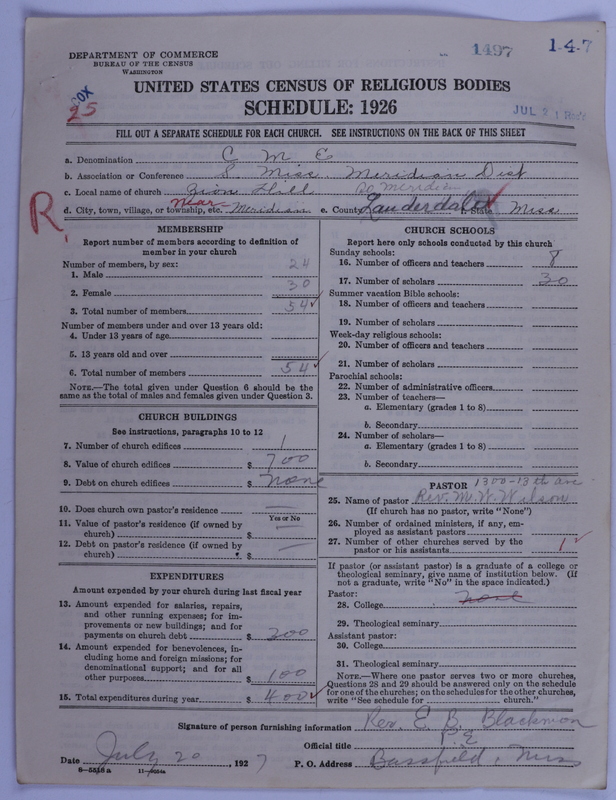 DEPARTMENT OF COMMERCE
BUREAU OF THE CENSUS
WASHINGTON
1497
1-4-7
UNITED STATES CENSUS OF RELIGIOUS BODIES
SCHEDULE: 1926
COX
25
JUL 21
FILL OUT A SEPARATE SCHEDULE FOR EACH CHURCH. SEE INSTRUCTIONS ON THE BACK OF THIS SHEET
a. Denomination C M E
b. Association or Conference S. Miss. Meridian Dist
c. Local name of church Zion Hill So Meridian
R.
d. City, town, village, or township, etc. near Meridian e. County Lauderdale f. State Miss
MEMBERSHIP
Report number of members according to definition of
member in your church
Number of members, by sex:
1. Male 24
2. Female 30
3. Total number of members 54
Number of members under and over 13 years old:
4. Under 13 years of age
5. 13 years old and over
6. Total number of members 54
NOTE.—The total given under Question 6 should be the
same as the total of males and females given under Question 3.
CHURCH BUILDINGS
See instructions, paragraphs 10 to 12
7. Number of church edifices 1
8. Value of church edifices $ 700
9. Debt on church edifices $ none
10. Does church own pastor's residence
Yes or No
11. Value of pastor's residence (if owned by
church) $
12. Debt on pastor's residence (if owned by
church) $
EXPENDITURES
Amount expended by your church during last fiscal year
13. Amount expended for salaries, repairs,
and other running expenses; for im-
provements or new buildings; and for
payments on church debt $ 300
14. Amount expended for benevolences, in-
cluding home and foreign missions; for
denominational support; and for all
other purposes $ 100
15. Total expenditures during year $ 400
CHURCH SCHOOLS
Report here only schools conducted by this church
Sunday schools:
16. Number of officers and teachers 8
17. Number of scholars 30
Summer vacation Bible schools:
18. Number of officers and teachers
19. Number of scholars
Week-day religious schools:
20. Number of officers and teachers
21. Number of scholars
Parochial schools:
22. Number of administrative officers
23. Number of teachers—
a. Elementary (grades 1 to 8)
b. Secondary
24. Number of scholars—
a. Elementary (grades 1 to 8)
b. Secondary
PASTOR 1300-13th ave
25. Name of pastor Rev. M. W. Wilson
(If church has no pastor, write "None")
26. Number of ordained ministers, if any, em-
ployed as assistant pastors
27. Number of other churches served by the
pastor or his assistants 1
If pastor (or assistant pastor) is a graduate of a college or
theological seminary, give name of institution below. (If
not a graduate, write "No" in the space indicated.)
Pastor:
28. College none
29. Theological seminary
Assistant pastor:
30. College
31. Theological seminary
NOTE.—Where one pastor serves two or more churches,
Questions 28 and 29 should be answered only on the schedule
for one of the churches; on the schedules for the other churches,
write "See schedule for church."
Signature of person furnishing information Rev. E. B. Blackmon
Official title P E
Date July 20, 1927 P. O. Address Bassfield, Miss
8-5518 a